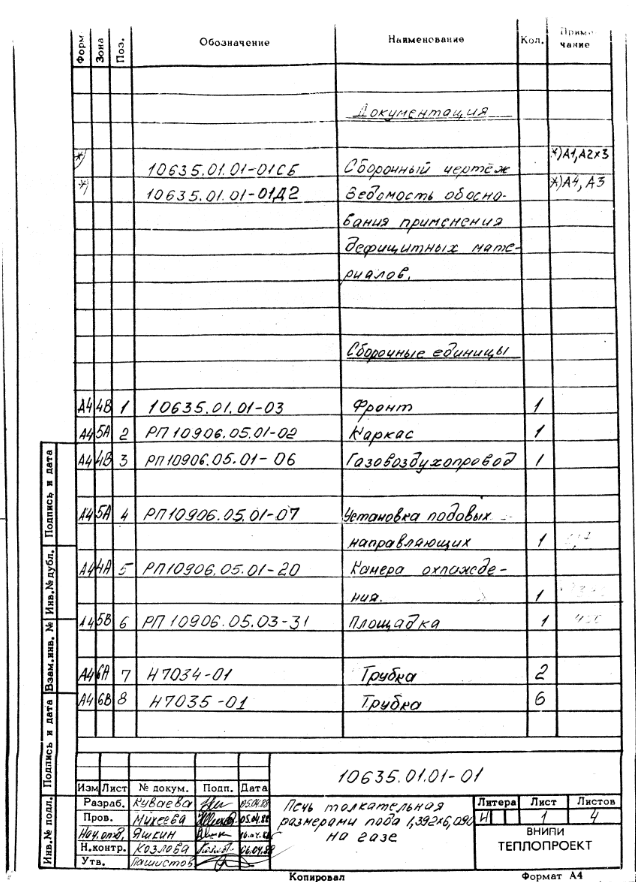 Форм Зона Поз. Обозначение Наименование Кол. Приме-
чание
Документация
*) 10635.01.01-01СБ Сборочный чертёж *)А1,А2×3
*) 10635.01.01-01Д2 Ведомость обосно- *)А4, А3
вания применения
дефицитных мате-
риалов.
Сборочные единицы
А4 4В 1 10635.01.01-03 Фронт 1
А4 5А 2 РП10906.05.01-02 Каркас 1
А4 4В 3 РП10906.05.01-06 Газовоздухопровод 1
А4 5А 4 РП10906.05.01-07 Установка подовых
направляющих 1
А4 4А 5 РП10906.05.01-20 Камера охлажде-
ния. 1
А4 5В 6 РП10906.05.03-31 Площадка 1
А4 6А 7 Н7034-01 Трубка 2
А4 6В 8 Н7035-01 Трубка 6
Подпись и дата
Инв.№ дубл.
Взам.инв. №
Подпись и дата
Инв.№ подл.
10635.01.01-01
Изм Лист № докум. Подп. Дата
Разраб. Куваева 05.04.88
Пров. Михеева 05.04.88
Нач.отд. Яшкин
Н.контр. Козлова 06.04.88
Утв.
Печь толкательная
размерами пода 1,392×6,090
на газе
Литера Лист Листов
И 1 4
ВНИПИ
ТЕПЛОПРОЕКТ
Копировал Формат А4